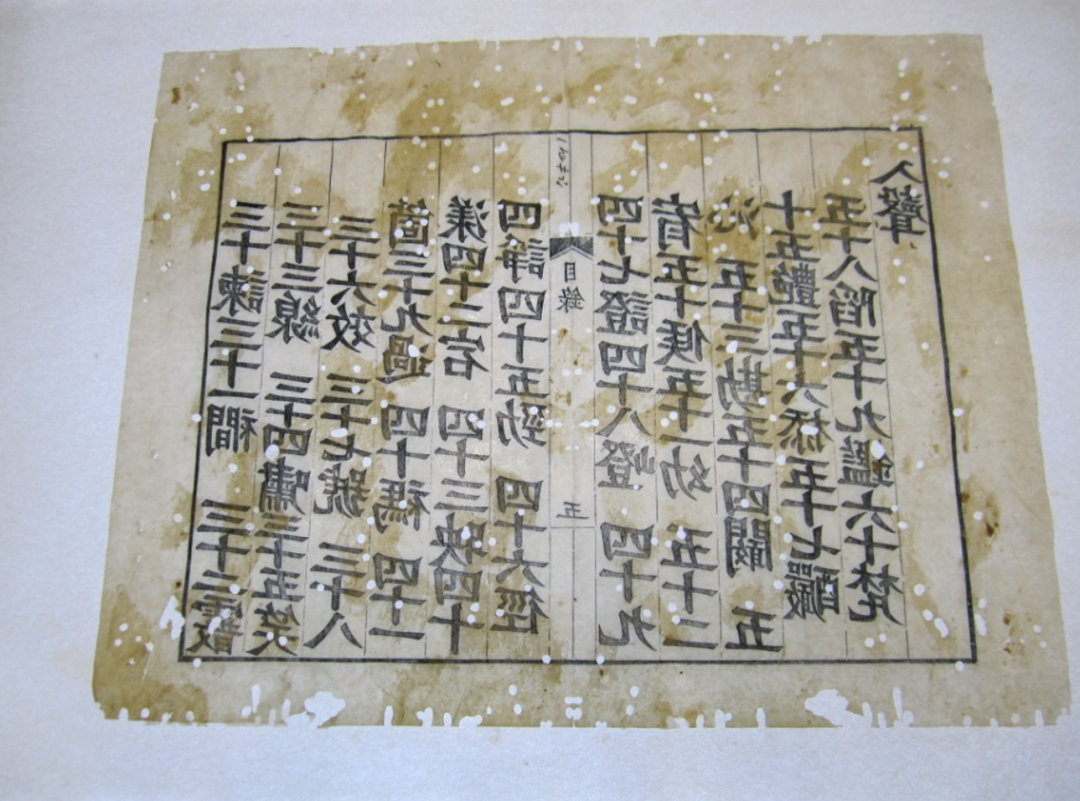 三十諫三十一襇 三十二霰
三十三線 三十四嘯三十五笑
三十六效 三十七號 三十八
箇三十九過 四十禡 四十一
漾四十二宕 四十三映四十
四諍四十五勁 四十六徑
目錄 五
四十七證四十八嶝 四十九
宥五十候五十一幼 五十二
沁 五十三勘五十四闞 五
十五艷五十六㮇五十七釅
五十八陷五十九鑑六十梵
入聲